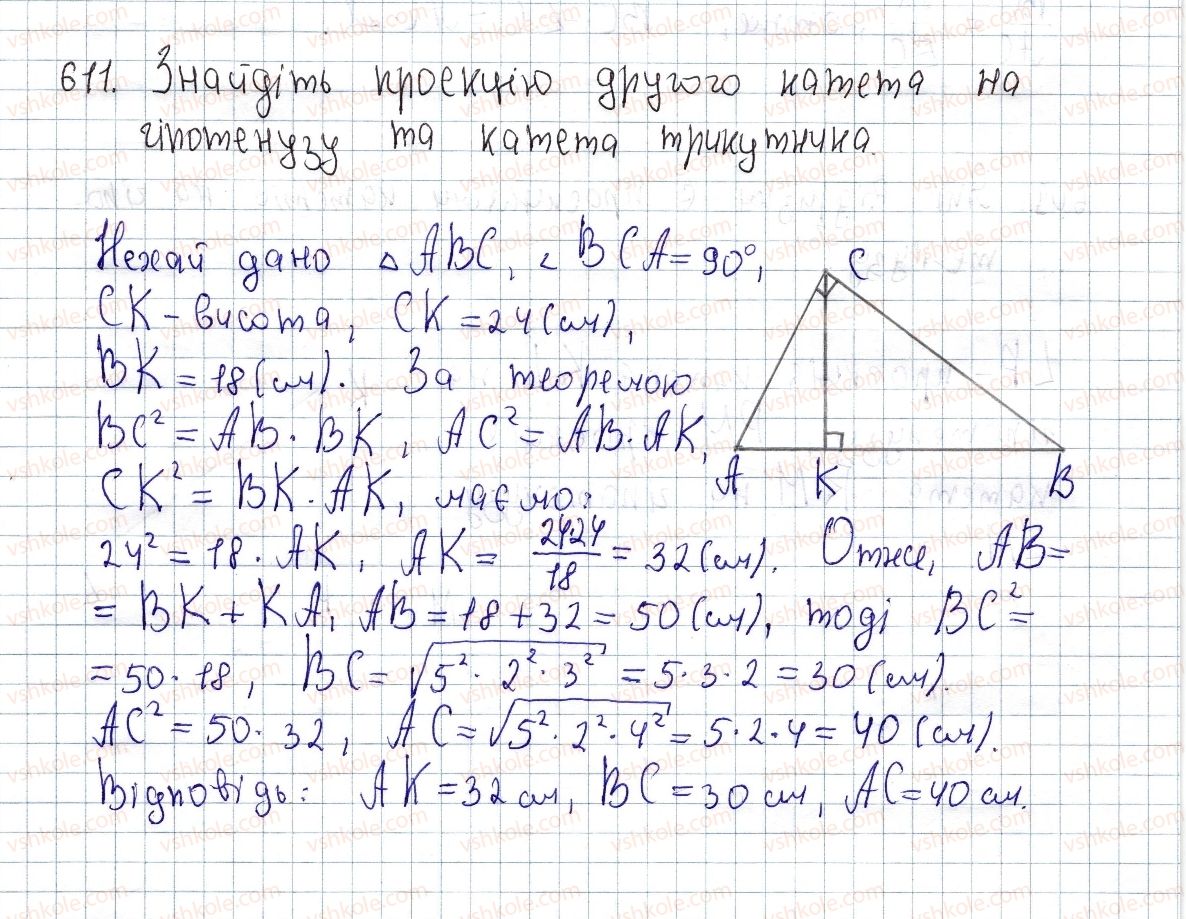 611. Знайдіть проекцію другого катета на
гіпотенузу та катета трикутника.
Нехай дано △ ABC, ∠ BCA = 90°,
CK - висота, CK = 24 (см),
BK = 18 (см). За теоремою
BC² = AB · BK, AC² = AB · AK,
CK² = BK · AK, маємо:
24² = 18 · AK, AK = 24·24/18 = 32 (см). Отже, AB =
= BK + KA, AB = 18 + 32 = 50 (см), тоді BC² =
= 50 · 18, BC = √5² · 2² · 3² = 5 · 3 · 2 = 30 (см).
AC² = 50 · 32, AC = √5² · 2² · 4² = 5 · 2 · 4 = 40 (см).
Відповідь: AK = 32 см, BC = 30 см, AC = 40 см.
C
A K B
vshkole.com